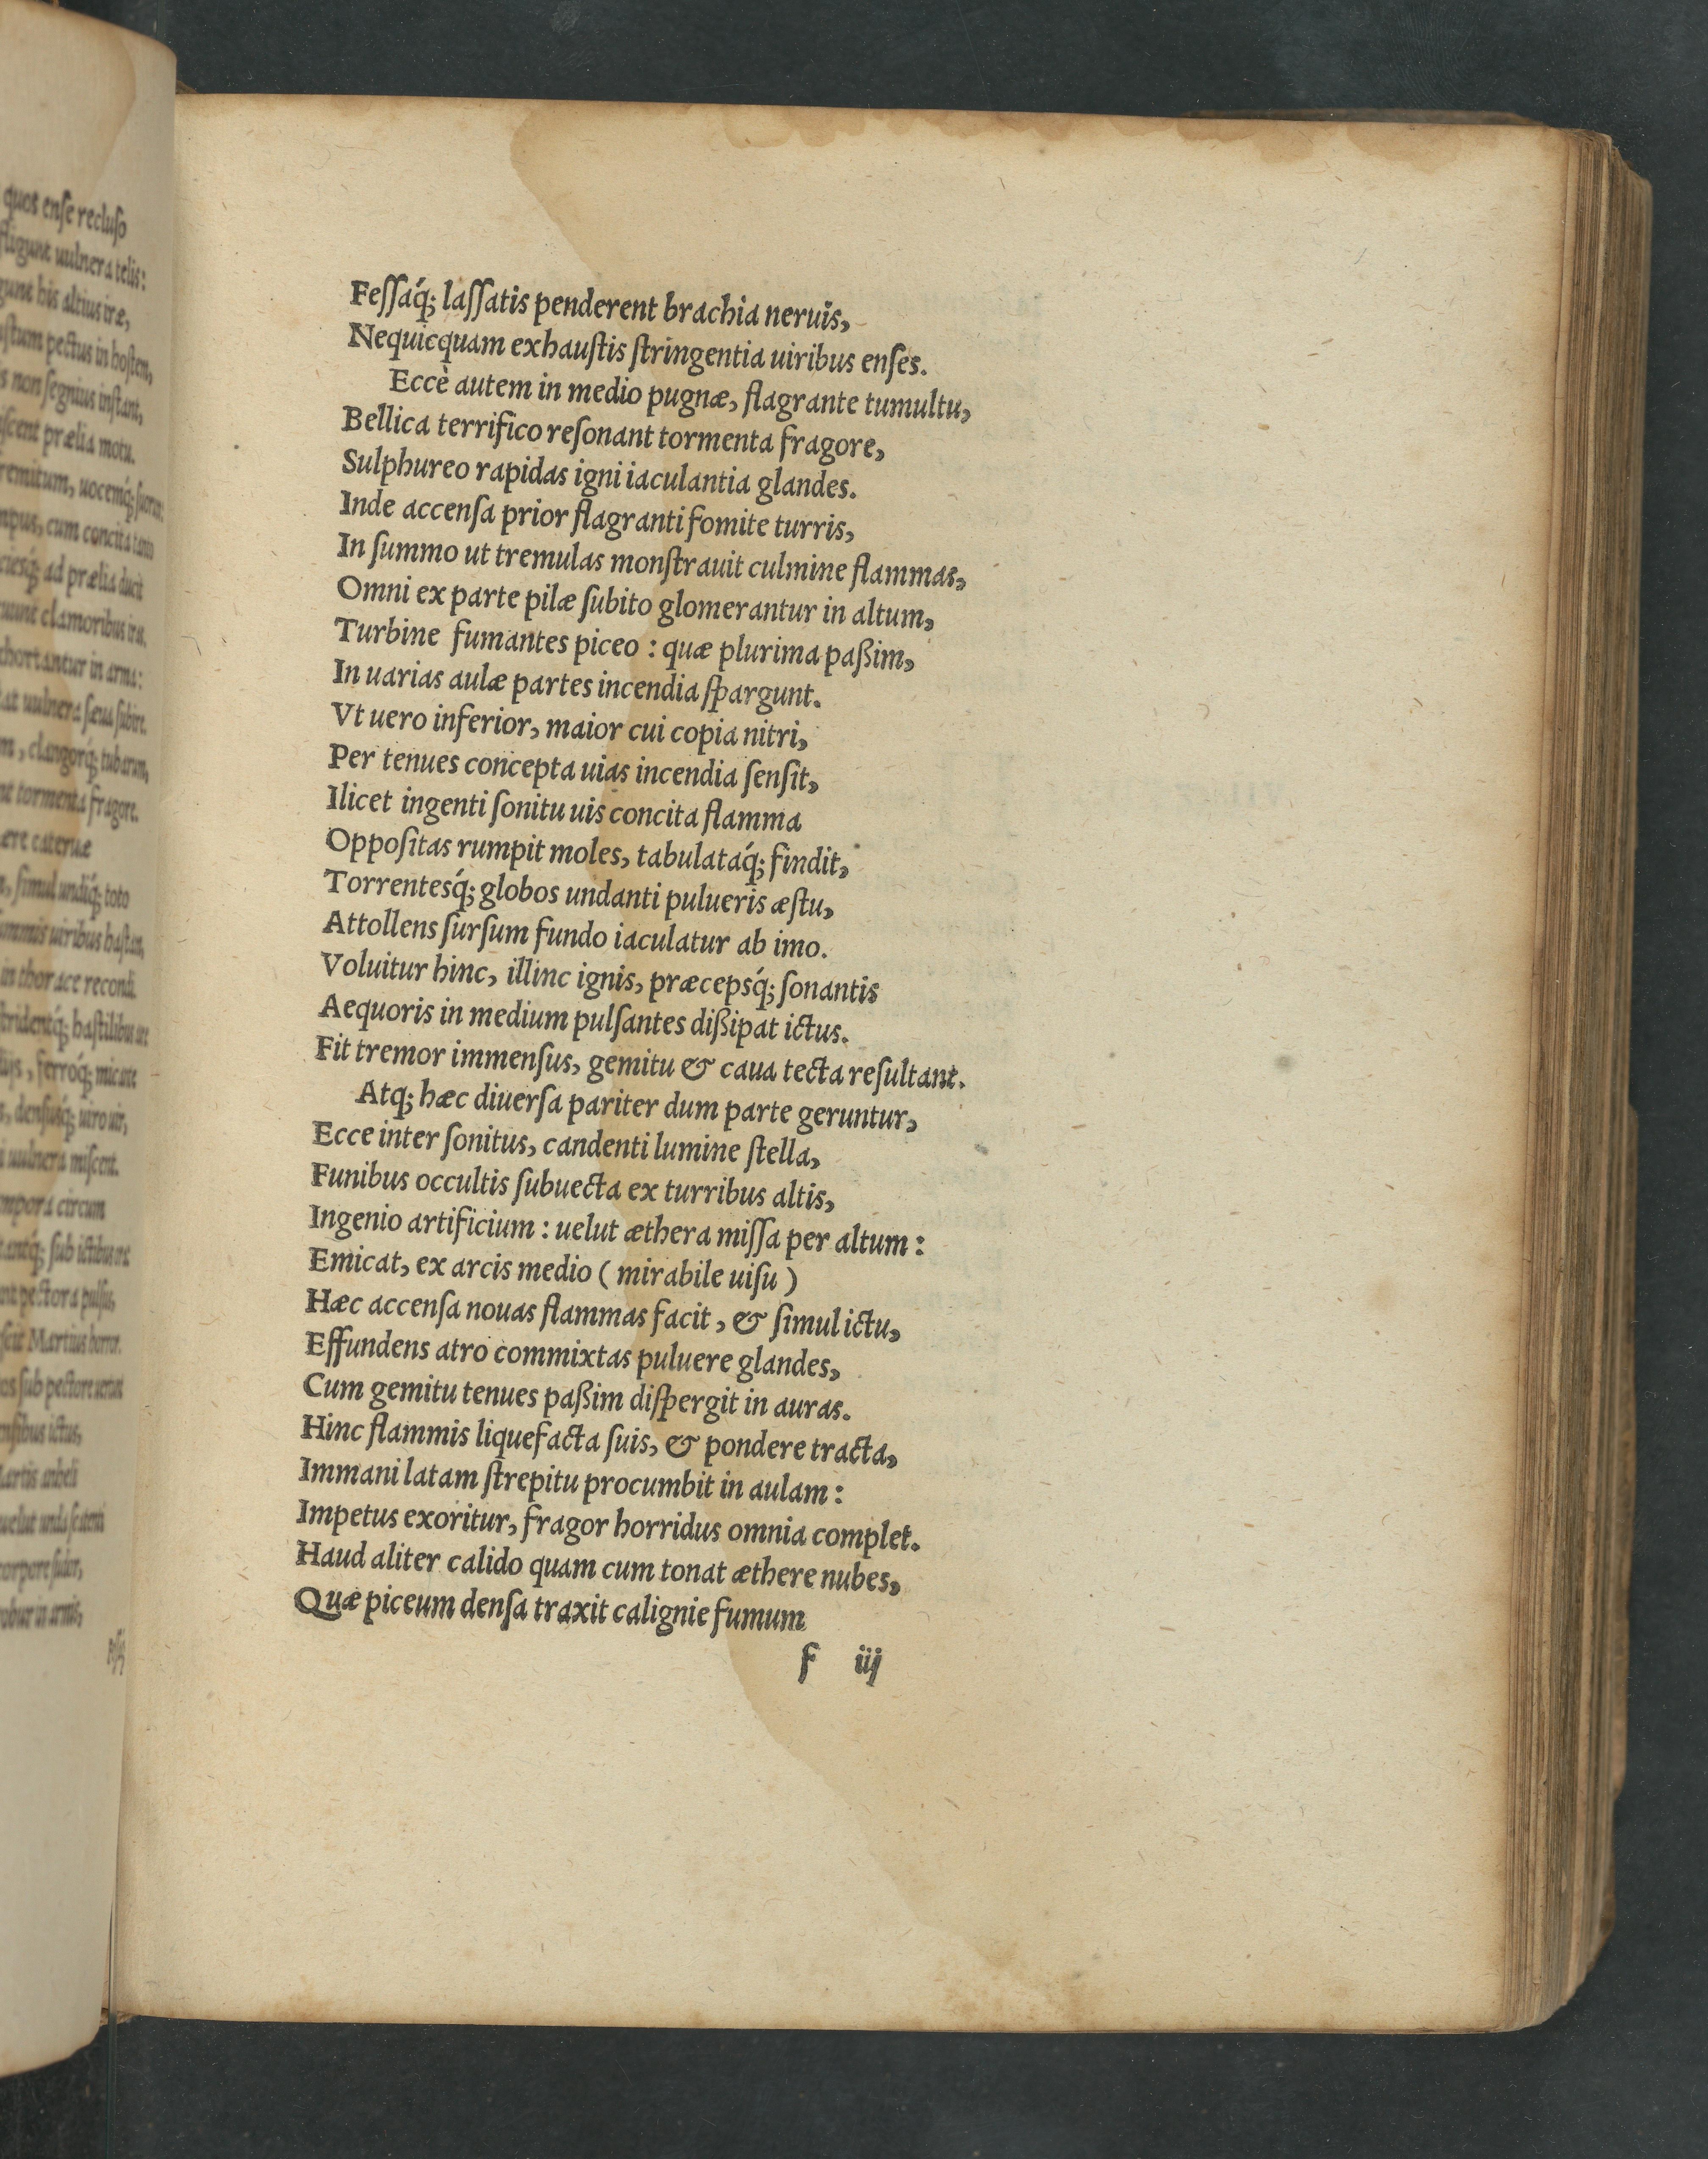 quos enſe recluſo
uulnera telis:
his altius iræ,
pectus in hoſtem,
non ſegnius inſtant,
prælia motu.
uocemq́;
cum concita
ad prælia ducit
clamoribus
in arma:
uulnera ſæua ſubire.
clangorq́; tubarum,
tormenta fragore.
ære cateruæ
ſimul undiq́; toto
uiribus haſtas,
in thorace
haſtilibus
ferróq́; micate
uiro uir,
uulnera miſcent.
circum
ſub ictibus
pectora
Martius horror.
ſub pectore
ictus,
anheli
uelut unda
corpore
robur in armis,
Feſſaq́; laſſatis penderent brachia neruis,
Nequicquam exhauſtis ſtringentia uiribus enſes.
Eccè autem in medio pugnæ, flagrante tumultu,
Bellica terrifico reſonant tormenta fragore,
Sulphureo rapidas igni iaculantia glandes.
Inde accenſa prior flagranti fomite turris,
In ſummo ut tremulas monſtrauit culmine flammas,
Omni ex parte pilæ ſubito glomerantur in altum,
Turbine fumantes piceo : quæ plurima paßim,
In uarias aulæ partes incendia ſpargunt.
Vt uero inferior, maior cui copia nitri,
Per tenues concepta uias incendia ſenſit,
Ilicet ingenti ſonitu uis concita flamma
Oppoſitas rumpit moles, tabulataq́; findit,
Torrentesq́; globos undanti pulueris æſtu,
Attollens ſurſum fundo iaculatur ab imo.
Voluitur hinc, illinc ignis, præcepsq́; ſonantis
Aequoris in medium pulſantes dißipat ictus.
Fit tremor immenſus, gemitu & caua tecta reſultant.
Atq; hæc diuerſa pariter dum parte geruntur,
Ecce inter ſonitus, candenti lumine ſtella,
Funibus occultis ſubuecta ex turribus altis,
Ingenio artificium : uelut æthera miſſa per altum :
Emicat, ex arcis medio ( mirabile uiſu )
Hæc accenſa nouas flammas facit, & ſimul ictu,
Effundens atro commixtas puluere glandes,
Cum gemitu tenues paßim diſpergit in auras.
Hinc flammis liquefacta ſuis, & pondere tracta,
Immani latam ſtrepitu procumbit in aulam :
Impetus exoritur, fragor horridus omnia complet.
Haud aliter calido quam cum tonat æthere nubes,
Quæ piceum denſa traxit calignie fumum
f iij